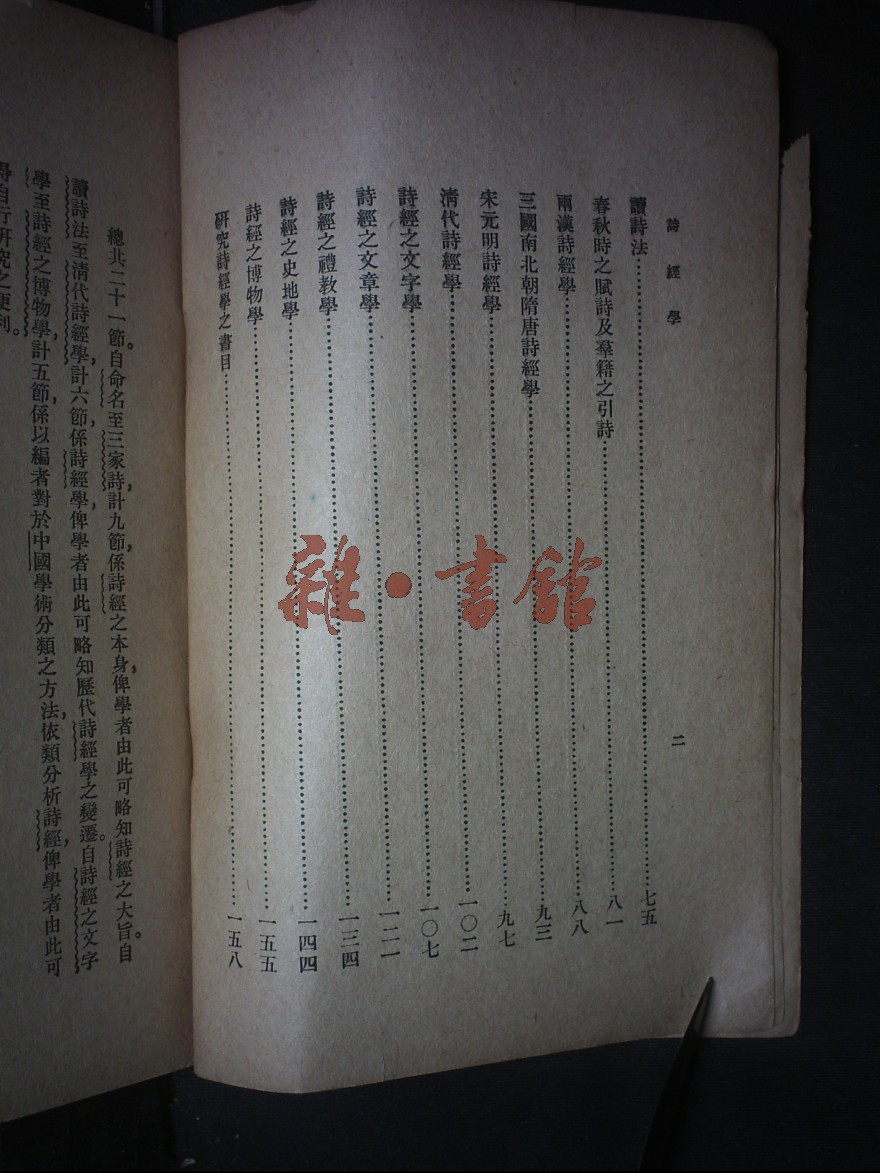 詩經學 二
讀詩法……七五
春秋時之賦詩及羣籍之引詩……八一
兩漢詩經學……八八
三國南北朝隋唐詩經學……九三
宋元明詩經學……九七
清代詩經學……一〇二
詩經之文字學……一〇七
詩經之文章學……一二一
詩經之禮教學……一三四
詩經之史地學……一四四
詩經之博物學……一五五
研究詩經學之書目……一五八
雜·書館
總共二十一節。自命名至三家詩，計九節，係詩經之本身，俾學者由此可略知詩經之大旨。自
讀詩法至清代詩經學，計六節，係詩經學，俾學者由此可略知歷代詩經學之變遷。自詩經之文字
學至詩經之博物學，計五節，係以編者對於中國學術分類之方法，依類分析詩經，俾學者由此可
自行研究之便利。